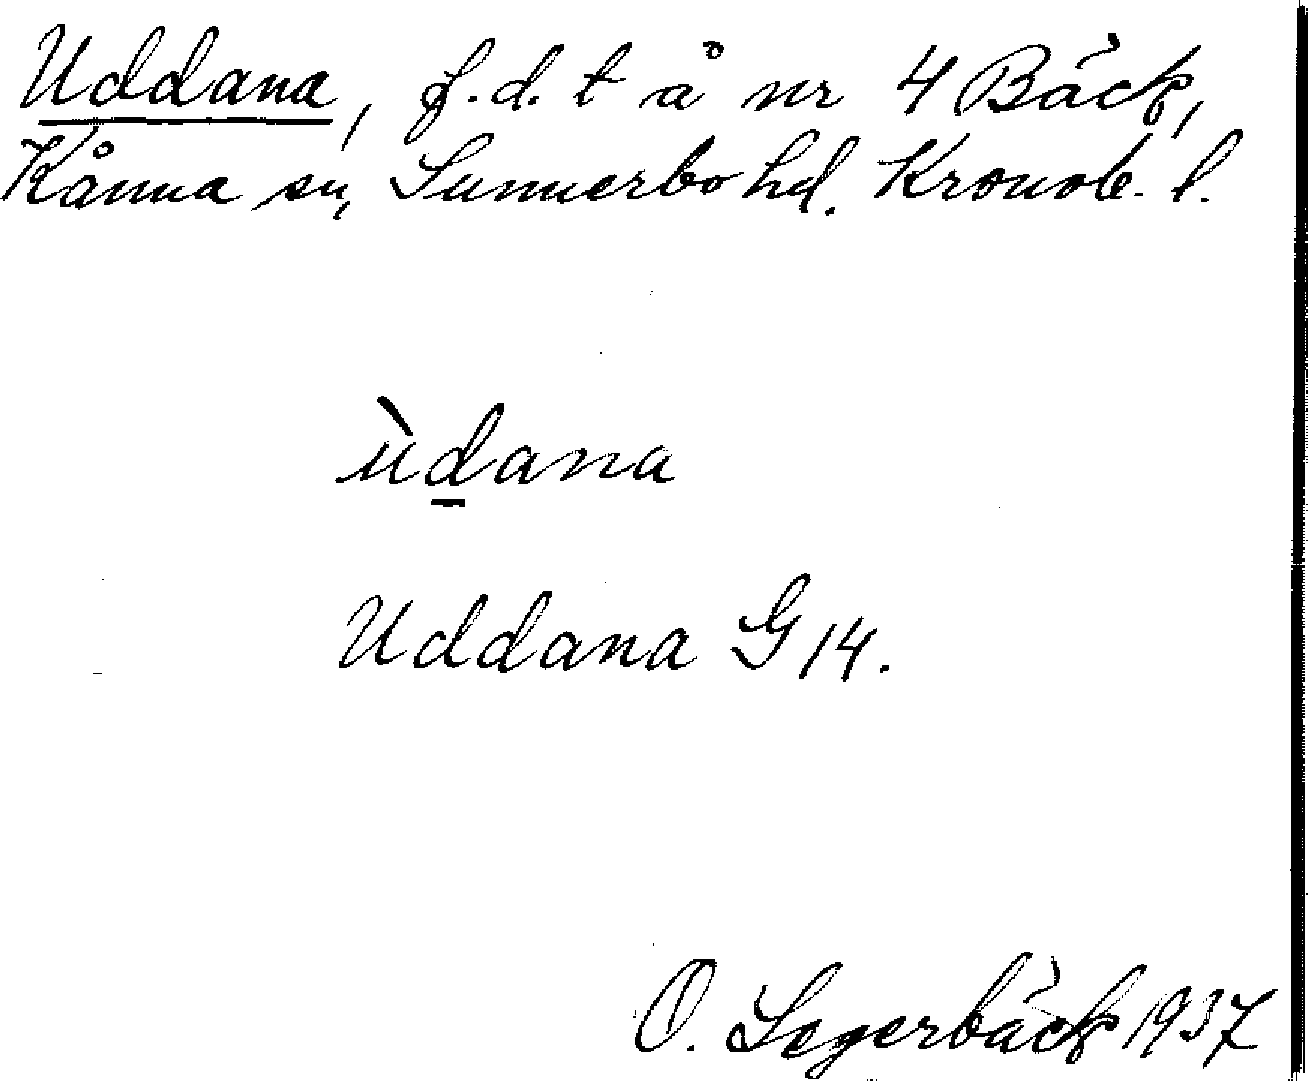 Uddana, f.d. t å nr 4 Bäck,
Kånna sn, Sunnerbo hd. Kronob. l.
ùd̲ana
Uddana G 14.
O. Segerbäck 1937